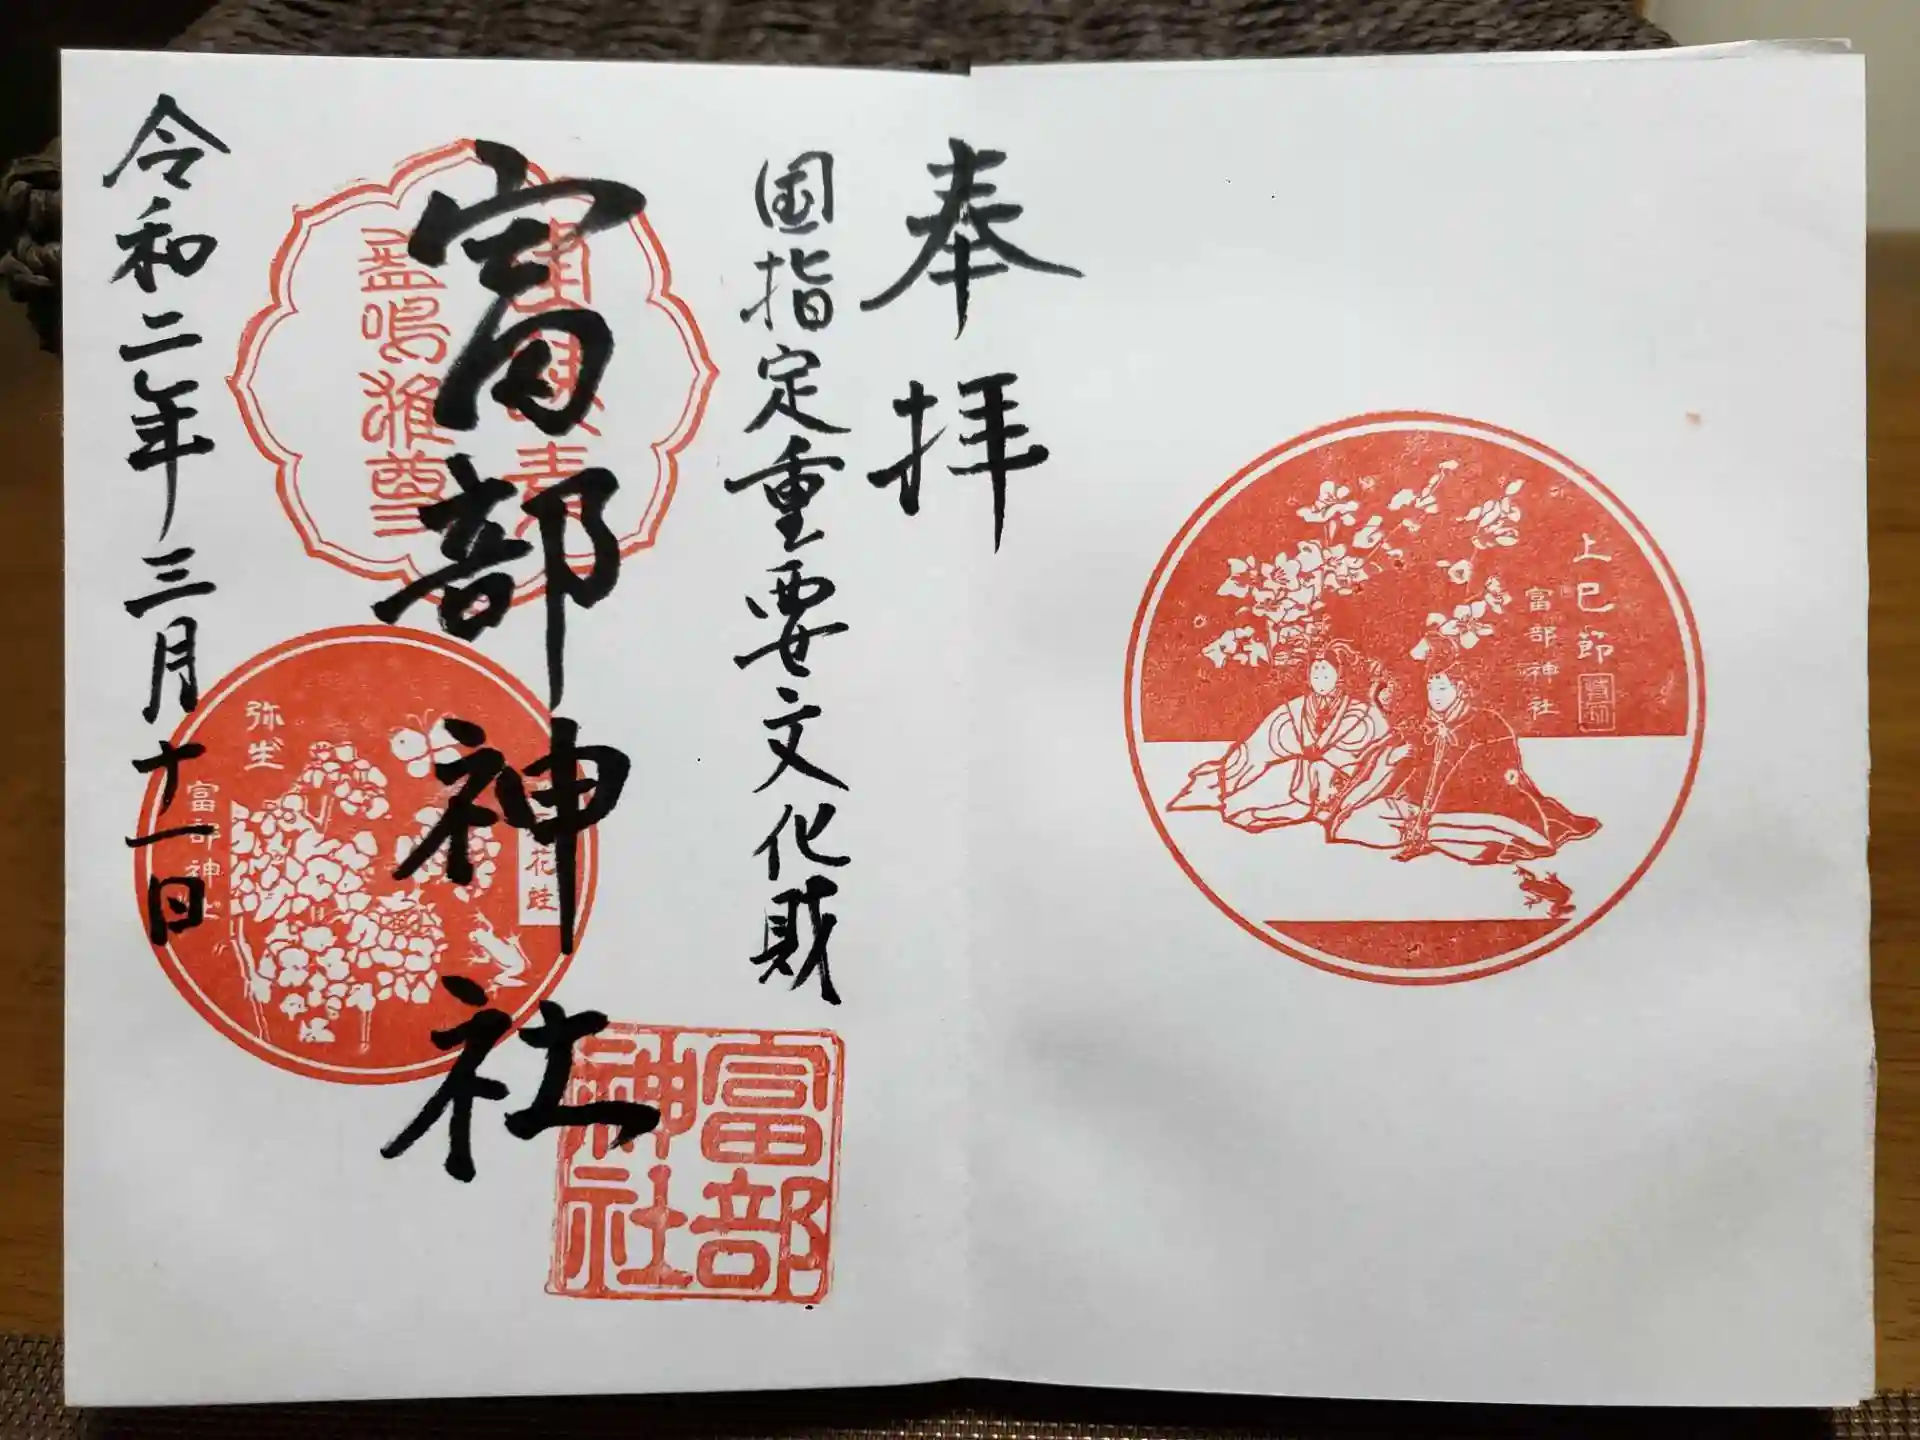 上巳節
富部神社
奉拝
国指定重要文化財
富部神社
富部
神社
盞嗚雄尊
弥生
富部神社
花蛙
令和二年三月十一日